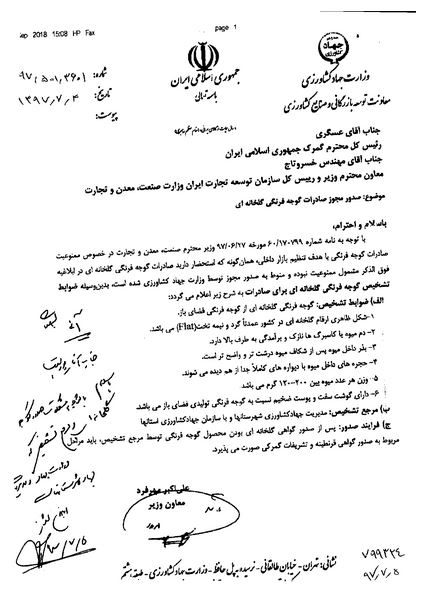 ep 2018 15:08 HP Fax
page 1
جهاد
جمهوری اسلامی ایران
باسمه تعالی
وزارت جهاد کشاورزی
معاونت توسعه بازرگانی و صنایع کشاورزی
شماره:
تاریخ: ۱۳۹۷,۷,۴
پیوست:
جناب آقای عسگری
رئیس کل محترم گمرک جمهوری اسلامی ایران
جناب آقای مهندس خسروتاج
معاون محترم وزیر و رییس کل سازمان توسعه تجارت ایران وزارت صنعت، معدن و تجارت
موضوع: صدور مجوز صادرات گوجه فرنگی گلخانه ای
باسلام و احترام،
با توجه به نامه شماره ۶۰/۱۷۰۷۹۹ مورخه ۹۷/۰۶/۲۷ وزیر محترم صنعت، معدن و تجارت در خصوص ممنوعیت
صادرات گوجه فرنگی با هدف تنظیم بازار داخلی، همان‌گونه که استحضار دارید صادرات گوجه فرنگی گلخانه ای در ابلاغیه
فوق الذکر مشمول ممنوعیت نبوده و منوط به صدور مجوز توسط وزارت جهاد کشاورزی شده است، بدین‌وسیله ضوابط
تشخیص گوجه فرنگی گلخانه ای برای صادرات به شرح زیر اعلام می گردد:
الف) ضوابط تشخیص: گوجه فرنگی گلخانه ای از گوجه فرنگی فضای باز.
۱- شکل ظاهری ارقام گلخانه ای در کشور عمدتاً گرد و نیمه تخت (Flat) می باشد.
۲- دم میوه یا کاسبرگ ها نازک و برآمدگی به طرف بالا دارد.
۳- بذر داخل میوه پس از شکاف میوه درشت تر و واضح تر است.
۴- حجره های داخل میوه با دیواره های کاملاً جدا از هم دیده می شوند.
۵- وزن هر عدد میوه بین ۲۰۰-۱۲۰ گرم می باشد.
۶- دارای گوشت سفت و پوست ضخیم نسبت به گوجه فرنگی تولیدی فضای باز می باشد.
ب) مرجع تشخیص: مدیریت جهادکشاورزی شهرستانها و یا سازمان جهادکشاورزی استانها
ج) فرایند صدور: پس از صدور گواهی گلخانه ای بودن محصول گوجه فرنگی توسط مرجع تشخیص، باید مراحل
مربوط به صدور گواهی قرنطینه و تشریفات گمرکی صورت می پذیرد.
علی اکبر مهرفرد
معاون وزیر
۷۹۹۲۳۴
۹۷,۷,۵
نشانی: تهران - خیابان طالقانی - نرسیده به پل حافظ - وزارت جهاد کشاورزی - طبقه هشتم